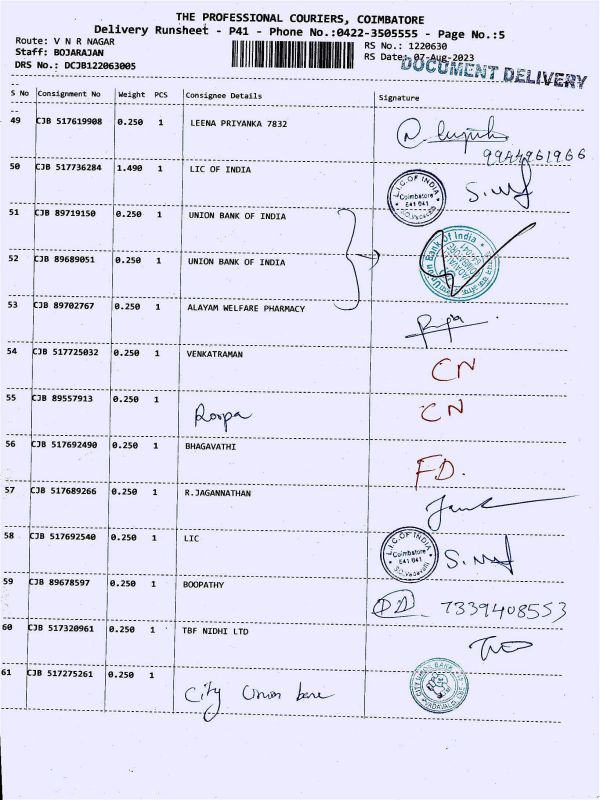 THE PROFESSIONAL COURIERS, COIMBATORE
Delivery Runsheet - P41 - Phone No.:0422-3505555 - Page No.:5
Route: V N R NAGAR
Staff: BOJARAJAN
DRS No.: DCJB122063005
RS No.: 1220630
RS Date: 07-Aug-2023
DOCUMENT DELIVERY
S No Consignment No Weight PCS Consignee Details Signature
49 CJB 517619908 0.250 1 LEENA PRIYANKA 7832
9944961966
50 CJB 517736284 1.490 1 LIC OF INDIA
L.I.C. OF INDIA
Coimbatore
641 041
51 CJB 89719150 0.250 1 UNION BANK OF INDIA
52 CJB 89689051 0.250 1 UNION BANK OF INDIA
Union Bank Of India
53 CJB 89702767 0.250 1 ALAYAM WELFARE PHARMACY
54 CJB 517725032 0.250 1 VENKATRAMAN CN
55 CJB 89557913 0.250 1 Roopa CN
56 CJB 517692490 0.250 1 BHAGAVATHI FD.
57 CJB 517689266 0.250 1 R.JAGANNATHAN
58 CJB 517692540 0.250 1 LIC
L.I.C. OF INDIA
Coimbatore
641 041
59 CJB 89678597 0.250 1 BOOPATHY 7339408553
60 CJB 517320961 0.250 1 TBF NIDHI LTD
61 CJB 517275261 0.250 1 City Union bane
CITY UNION BANK